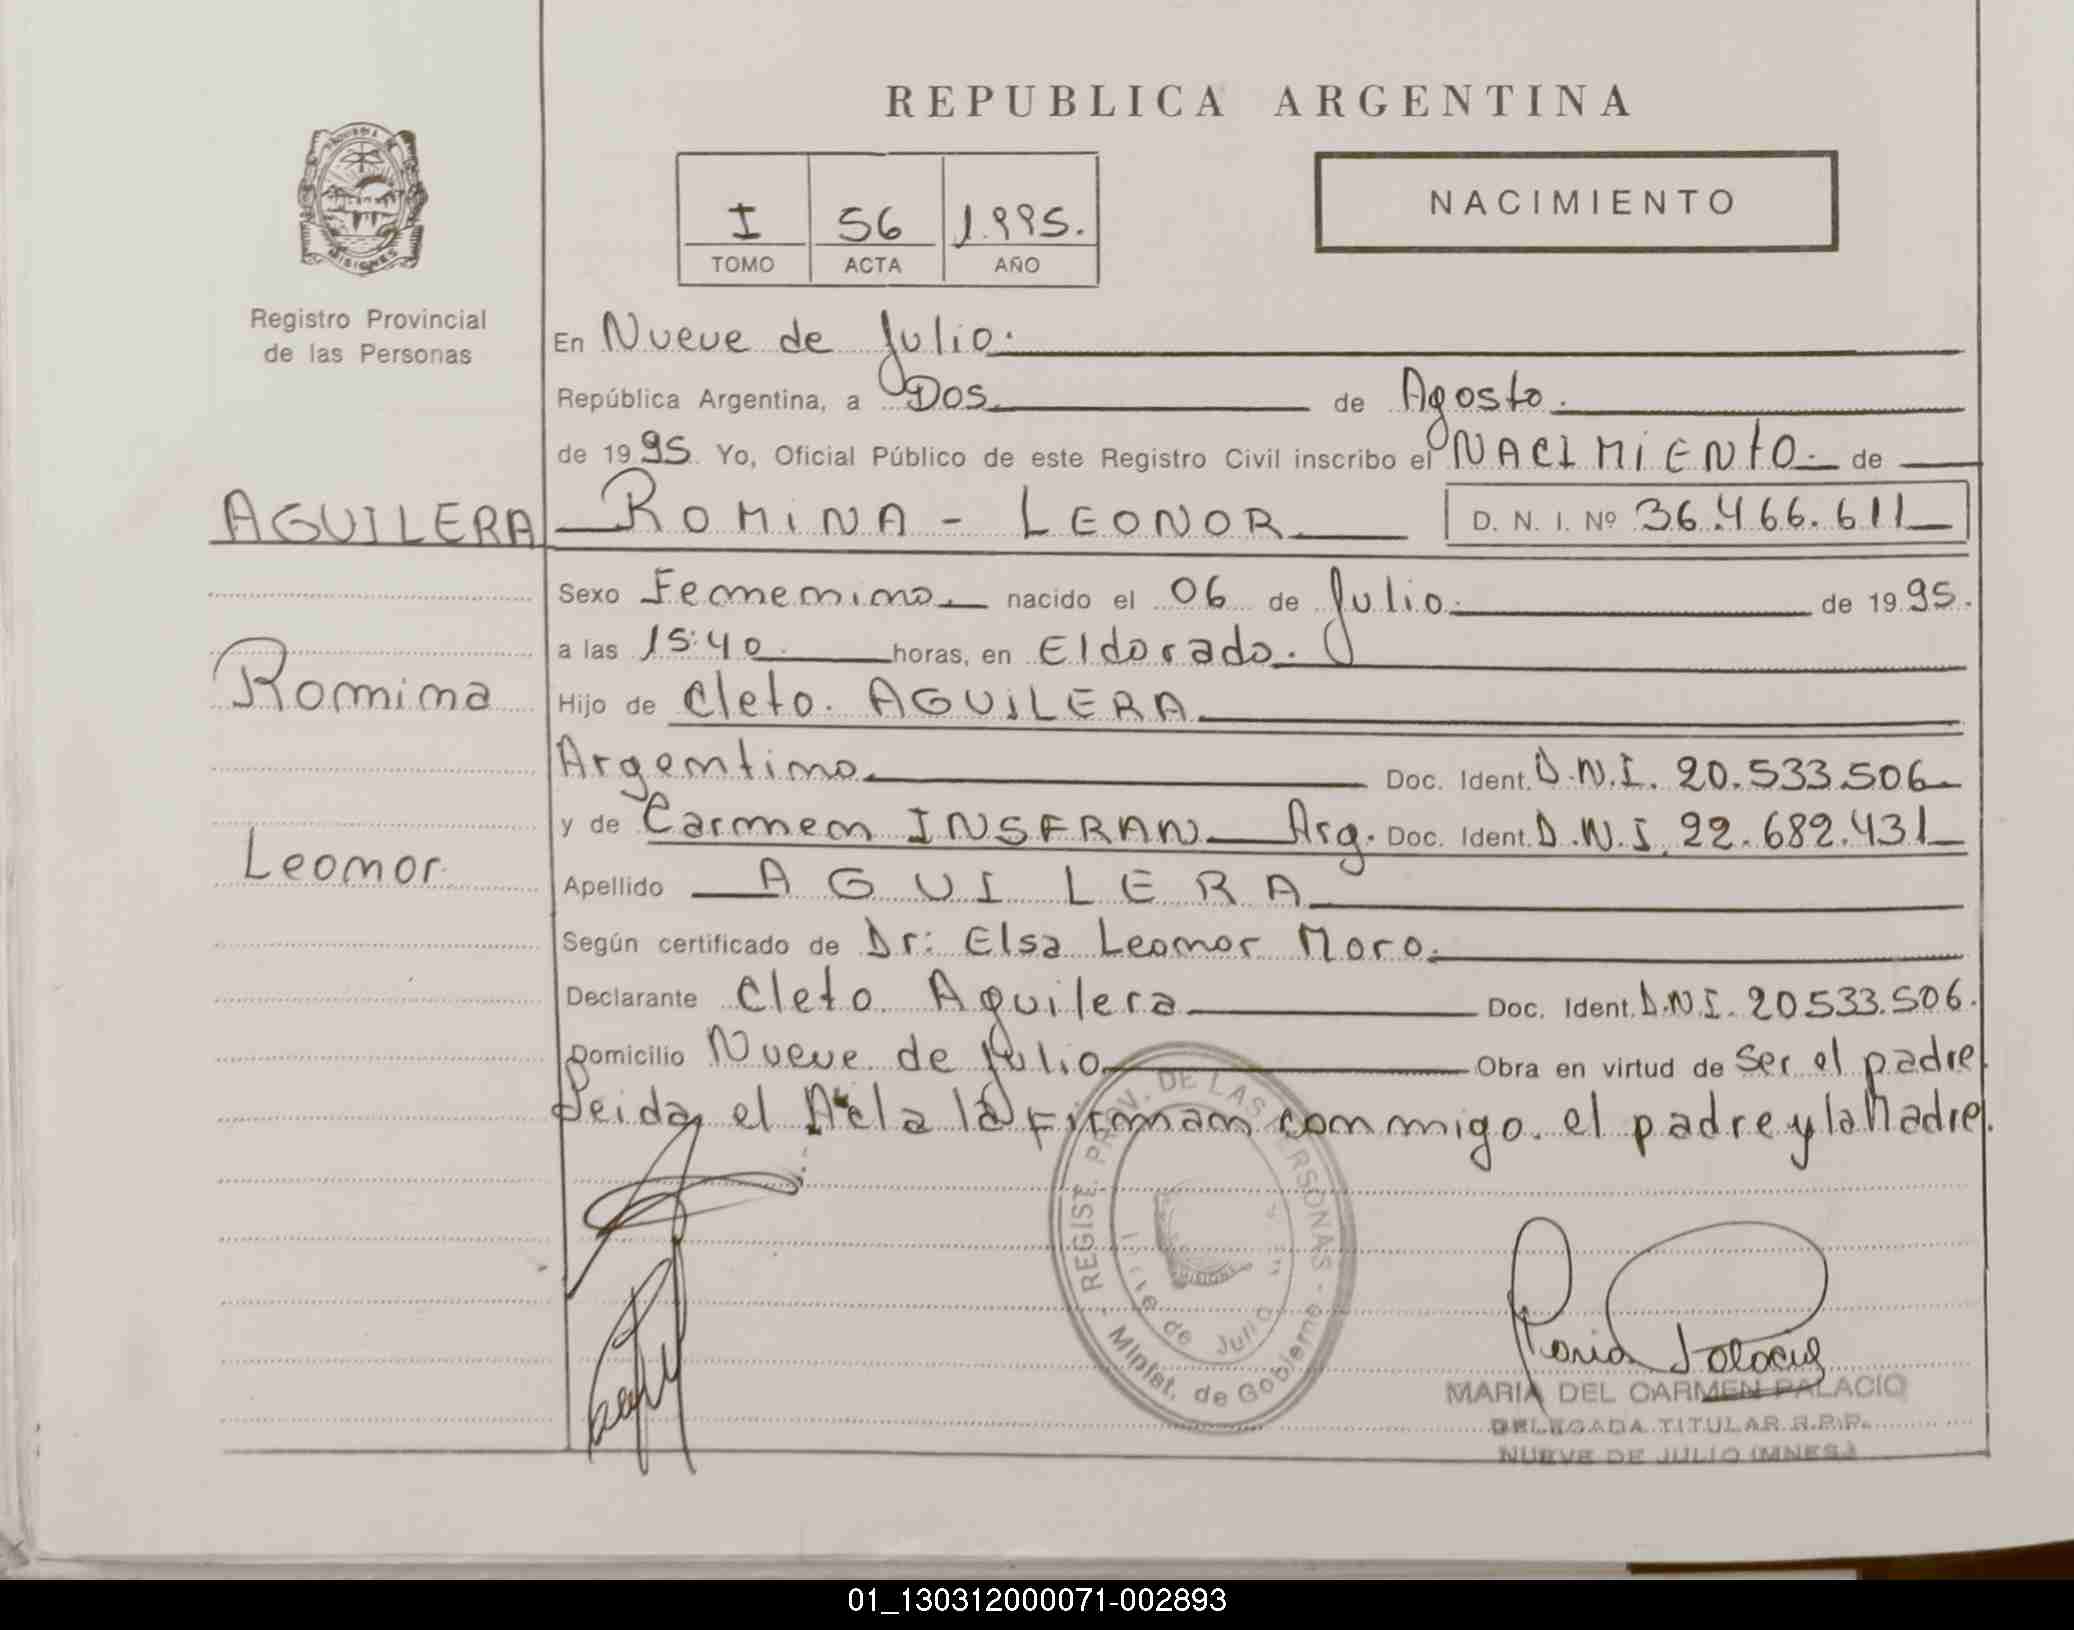 REPUBLICA ARGENTINA
NACIMIENTO
I 56 1.995.
TOMO ACTA AÑO
PROVINCIA DE
MISIONES
Registro Provincial
de las Personas
En Nueve de Julio.
República Argentina, a Dos de Agosto.
de 1995 Yo, Oficial Público de este Registro Civil inscribo el NACIMIENTO. de
AGUILERA ROMINA - LEONOR D. N. I. Nº 36.466.611
Sexo Femenino nacido el 06 de Julio. de 1995.
a las 15:40 horas, en Eldorado.
Romina Hijo de Cleto. AGUILERA
Argentino Doc. Ident. D.N.I. 20.533.506
y de Carmen INSFRAN Arg. Doc. Ident. D.N.I. 22.682.431
Leonor Apellido AGUILERA
Según certificado de Dr: Elsa Leonor Moro.
Declarante Cleto Aguilera Doc. Ident. D.N.I. 20533.506.
Domicilio Nueve de Julio Obra en virtud de Ser el padre
Leida el Acta la Firman conmigo. el padre y la Madre.
REGIST. PROV. DE LAS PERSONAS - Minist. de Gobierno -
de Julio
MISIONES
Maria Palacio
MARIA DEL CARMEN PALACIO
DELEGADA TITULAR R.P.P.
NUEVE DE JULIO (MNES.)
01_130312000071-002893